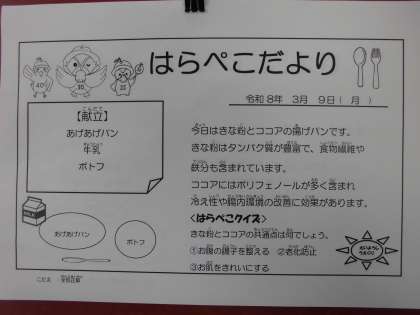 はらぺこだより
令和8年 3月 9日(月)
【献立】
あげあげパン
牛乳
ポトフ
今日はきな粉とココアの揚げパンです。
きな粉はタンパク質が豊富で、食物繊維や
鉄分も含まれています。
ココアにはポリフェノールが多く含まれ
冷え性や腸内環境の改善に効果があります。
<はらぺこクイズ>
きな粉とココアの共通点は何でしょう。
①お腹の調子を整える ②老化防止
③お肌をきれいにする
あげあげパン
ポトフ
こたえ 全部正解